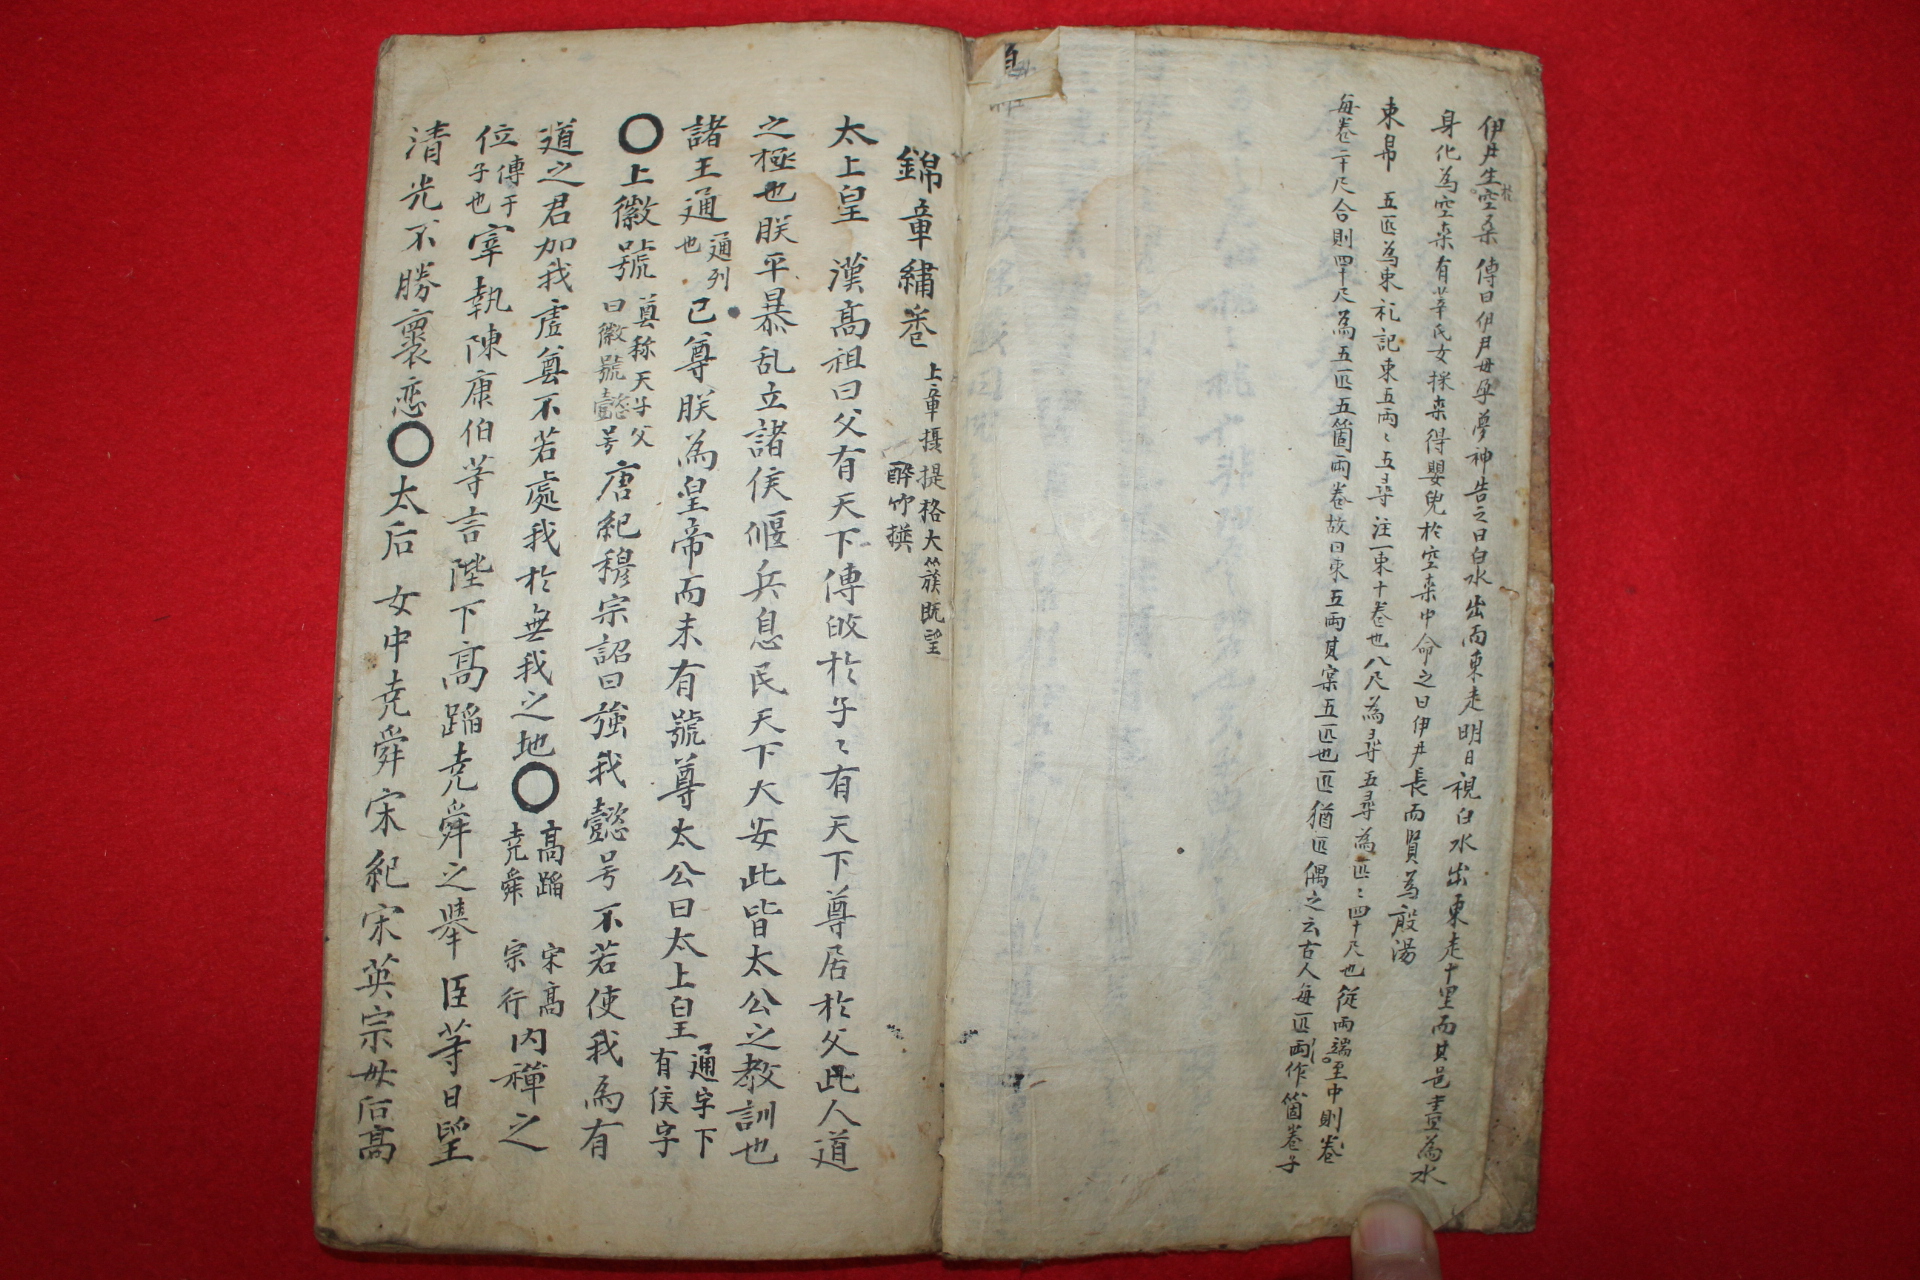 伊尹生空桑 傳曰伊尹母孕夢神告之曰臼水出而東走明日視臼水出東走十里而其邑盡為水
身化為空桑有莘氏女採桑得嬰兒於空桑中命之曰伊尹長而賢為殷湯
束帛 五匹為束礼記束五兩〻五尋注一束十卷也八尺為尋五尋為匹〻四十尺也從兩端至中則卷
每卷二十尺合則四十尺為五匹五箇兩卷故曰束五兩其案五匹也匹猶匹偶之云古人每匹兩作箇卷子
錦章繡卷 上章攝提格大簇既望
醉竹撰
太上皇 漢高祖曰父有天下傳放於子〻有天下尊居於父此人道
之極也朕平暴乱立諸侯偃兵息民天下大安此皆太公之教訓也
諸王通通列也已尊朕為皇帝而未有號尊太公曰太上皇通字下有侯字
〇上徽號尊称天子父曰徽號懿号唐紀穆宗詔曰強我懿号不若使我為有
道之君加我虛尊不若處我於無我之地〇高蹈堯舜 宋高宗行內禪之
位傳于子也宰執陳康伯等言陛下高蹈堯舜之擧臣等日望
清光不勝裹恋〇太后 女中堯舜宋紀宋英宗母后高